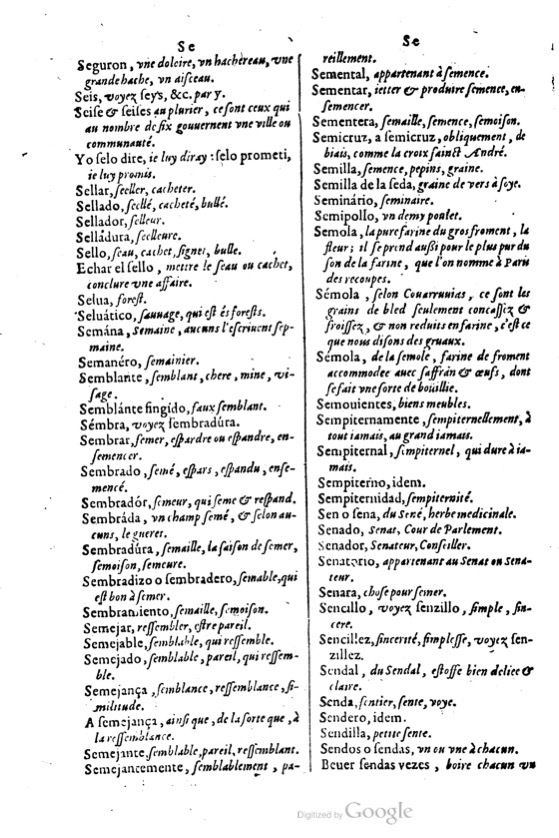 Se
Seguron, vne doloire, vn hachereau, vne
grande hache, vn aisceau.
Seis, voyez seys, &c. par y.
Seise & seises au plurier, ce sont ceux qui
au nombre de six gouuernent vne ville ou
communauté.
Yo selo dire, ie luy diray : selo prometi,
ie luy promis.
Sellar, seeller, cacheter.
Sellado, seellé, cacheté, bullé.
Sellador, selleur.
Selládura, seelleure.
Sello, seau, cachet, signet, bulle.
Echar el sello, mettre le seau ou cachet,
conclure vne affaire.
Selua, forest.
Seluático, sauuage, qui est és forests.
Semána, semaine, aucuns l'escriuent sep-
maine.
Semanéro, semainier.
Semblante, semblant, chere, mine, vi-
sage.
Semblánte fingido, faux semblant.
Sémbra, voyez sembradúra.
Sembrar, semer, espardre ou espandre, en-
semencer.
Sembrado, semé, espars, espandu, ense-
mencé.
Sembradór, semeur, qui seme & respand.
Sembráda, vn champ semé, & selon au-
cuns, le gueret.
Sembradúra, semaille, la saison de semer,
semoison, semeure.
Sembradizo o sembradero, semable, qui
est bon à semer.
Sembramiento, semaille, semoison.
Semejar, ressembler, estre pareil.
Semejable, semblable, qui ressemble.
Semejado, semblable, pareil, qui ressem-
ble.
Semejança, semblance, ressemblance, si-
militude.
A semejança, ainsi que, de la sorte que, à
la ressemblance.
Semejante, semblable, pareil, ressemblant.
Semejancemente, semblablement, pa-
Se
reillement.
Semental, appartenant à semence.
Sementar, ietter & produire semence, en-
semencer.
Sementera, semaille, semence, semoison.
Semicruz, a semicruz, obliquement, de
biais, comme la croix sainct André.
Semilla, semence, pepins, graine.
Semilla de la seda, graine de vers à soye.
Seminário, seminaire.
Semipollo, vn demy poulet.
Semola, la pure farine du gros froment, la
fleur ; il se prend aussi pour le plus pur du
son de la farine, que l'on nomme à Paris
des recoupes.
Sémola, selon Couarruuias, ce sont les
grains de bled seulement concassez &
froissez, & non reduits en farine, c'est ce
que nous disons des gruaux.
Sémola, de la semole, farine de froment
accommodee auec saffran & œufs, dont
se fait vne sorte de boüillie.
Semouientes, biens meubles.
Sempiternamente, sempiternellement, à
tout iamais, au grand iamais.
Sempiternal, sempiternel, qui dure à ia-
mais.
Sempiterno, idem.
Sempiternidad, sempiternité.
Sen o sena, du Sené, herbe medicinale.
Senado, Senat, Cour de Parlement.
Senador, Senateur, Conseiller.
Senatorio, appartenant au Senat ou Sena-
teur.
Senara, chose pour semer.
Sencillo, voyez senzillo, simple, sin-
cere.
Sencillez, sincerité, simplesse, voyez sen-
zillez.
Sendal, du Sendal, estoffe bien deliee &
claire.
Senda, sentier, sente, voye.
Sendero, idem.
Sendilla, petite sente.
Sendos o sendas, vn ou vne à chacun.
Beuer sendas vezes, boire chacun vn
Digitized by Google